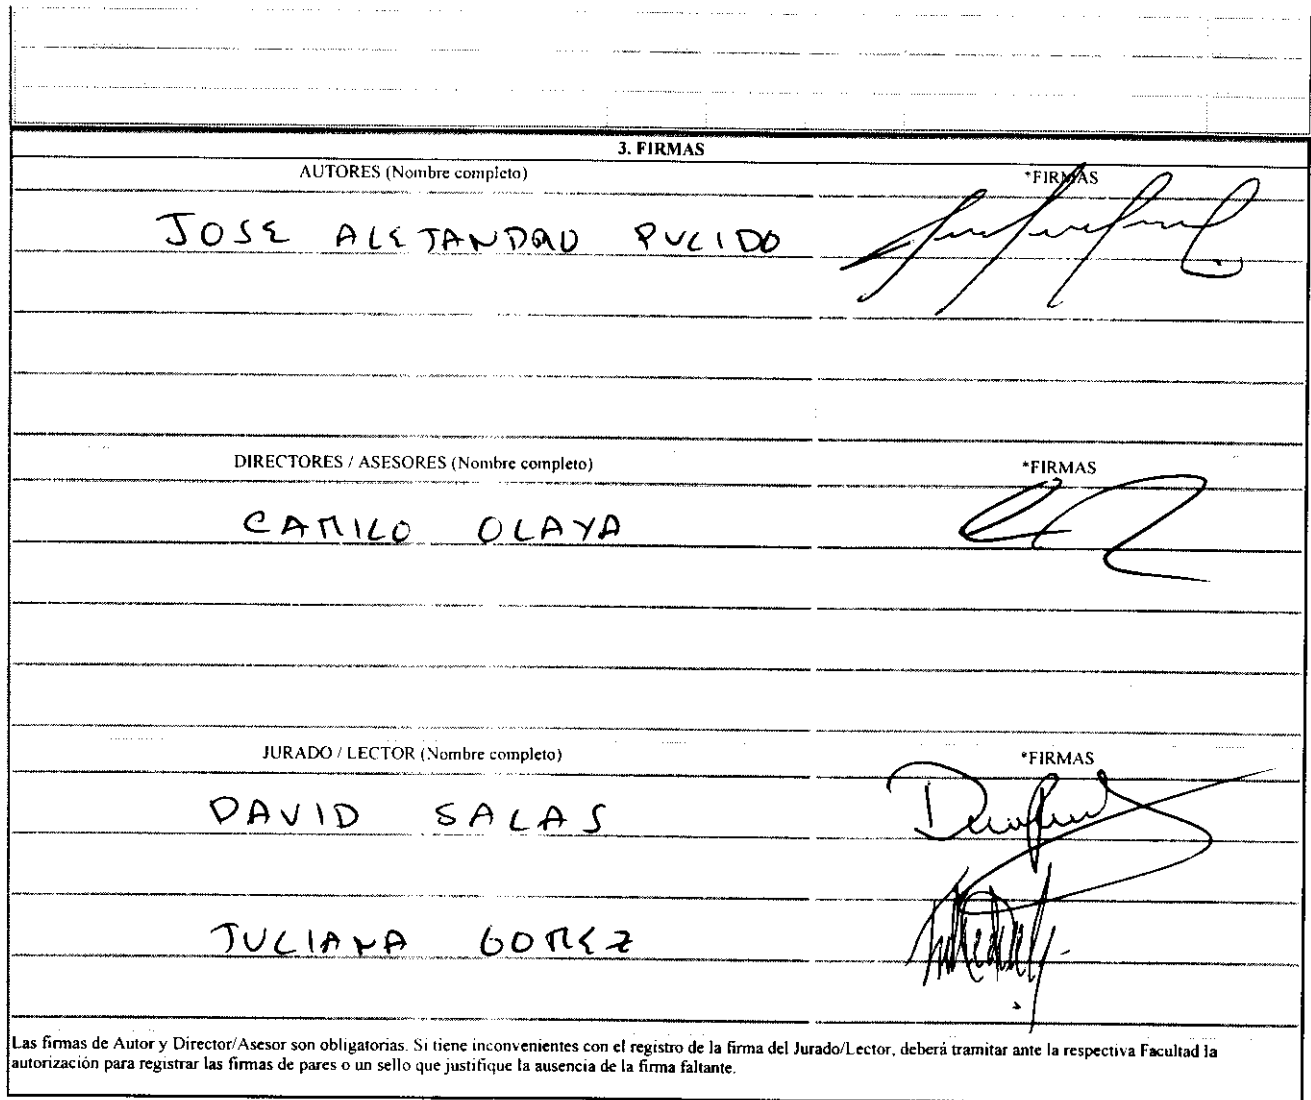 3. FIRMAS
AUTORES (Nombre completo) *FIRMAS
JOSE ALEJANDRO PULIDO
DIRECTORES / ASESORES (Nombre completo) *FIRMAS
CAMILO OLAYA
JURADO / LECTOR (Nombre completo) *FIRMAS
DAVID SALAS
JULIANA GOMEZ
Las firmas de Autor y Director/Asesor son obligatorias. Si tiene inconvenientes con el registro de la firma del Jurado/Lector, deberá tramitar ante la respectiva Facultad la
autorización para registrar las firmas de pares o un sello que justifique la ausencia de la firma faltante.